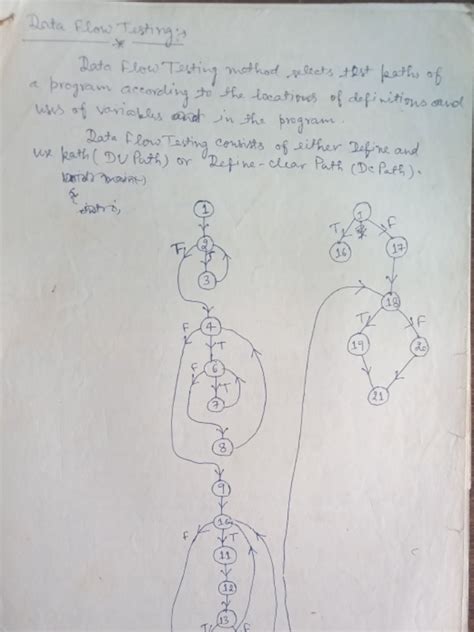 Data Flow Testing :-
Data Flow Testing method selects test paths of
a program according to the locations of definitions and
uses of variables in the program.
Data Flow Testing consists of either Define and
use path (DU Path) or Define-clear Path (DC Path).
1
1
T
F
2
16
17
T
F
3
18
4
T
F
F
T
19
20
6
F
T
7
21
8
9
10
F
T
11
12
13
T
F